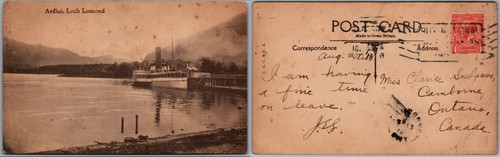 Ardlui, Loch Lomond
POST CARD.
Made in Great Britain
Correspondence
Address
Aug.
I am having
a fine time
on leave.
Miss Clara
Camborne,
Ontario,
Canada.